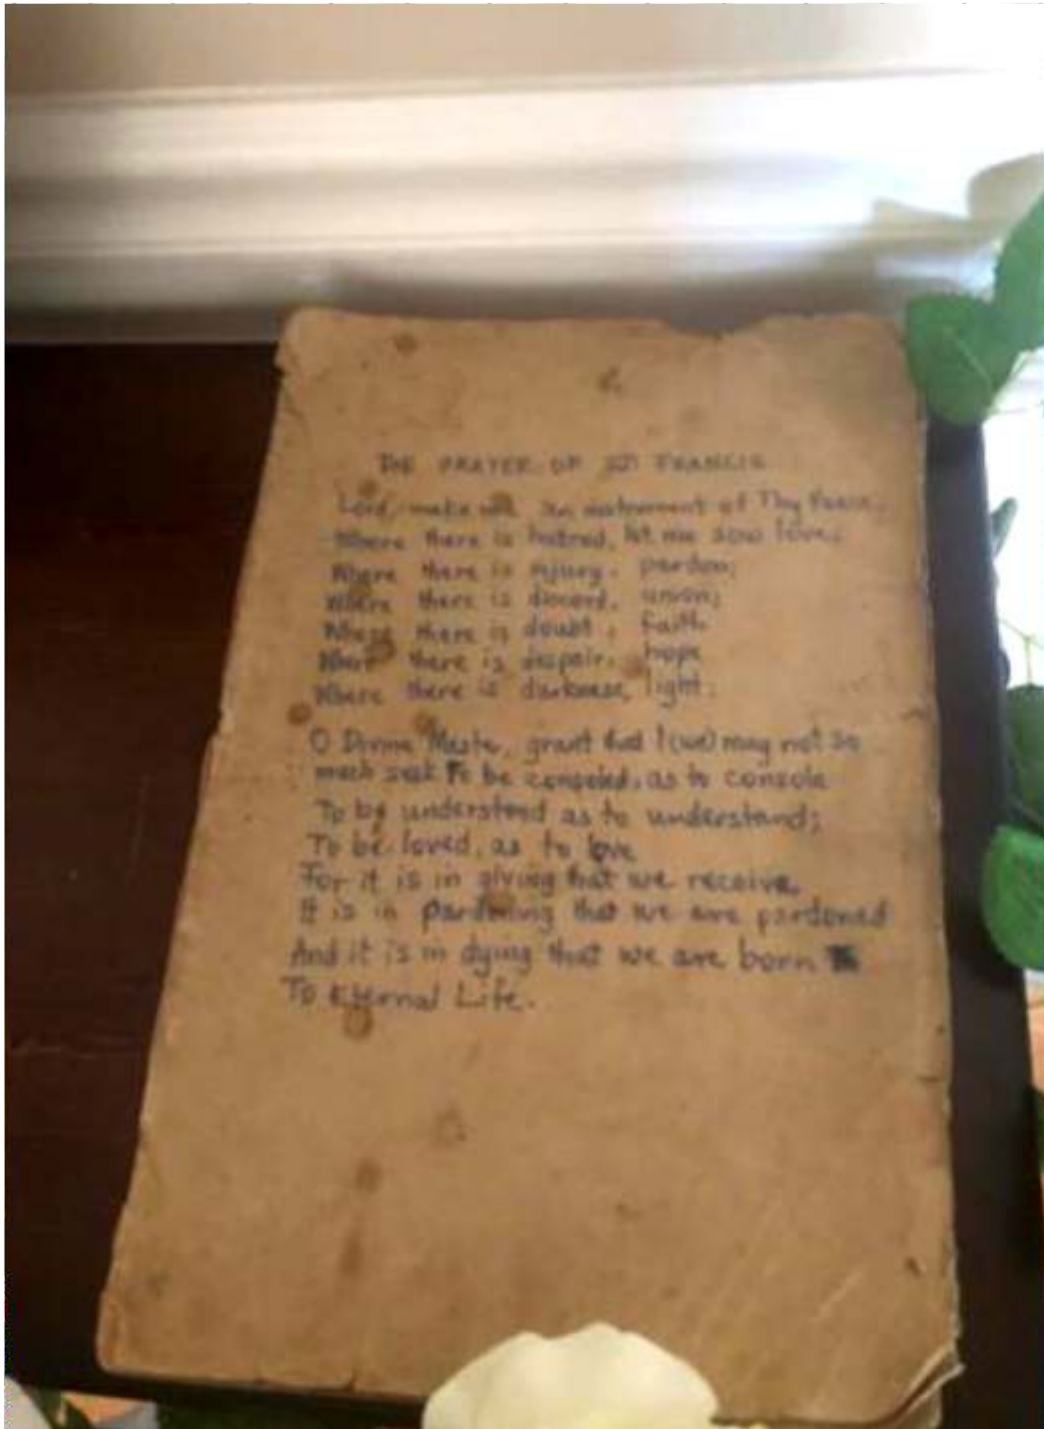 THE PRAYER OF ST FRANCIS
Lord, make me an instrument of Thy Peace,
Where there is hatred, let me sow love;
Where there is injury, pardon;
Where there is discord, union;
Where there is doubt, faith
Where there is despair, hope
Where there is darkness, light;
O Divine Master, grant that I (we) may not so
much seek To be consoled, as to console
To be understood as to understand;
To be loved, as to love
For it is in giving that we receive,
It is in pardoning that we are pardoned
And it is in dying that we are born
To Eternal Life.